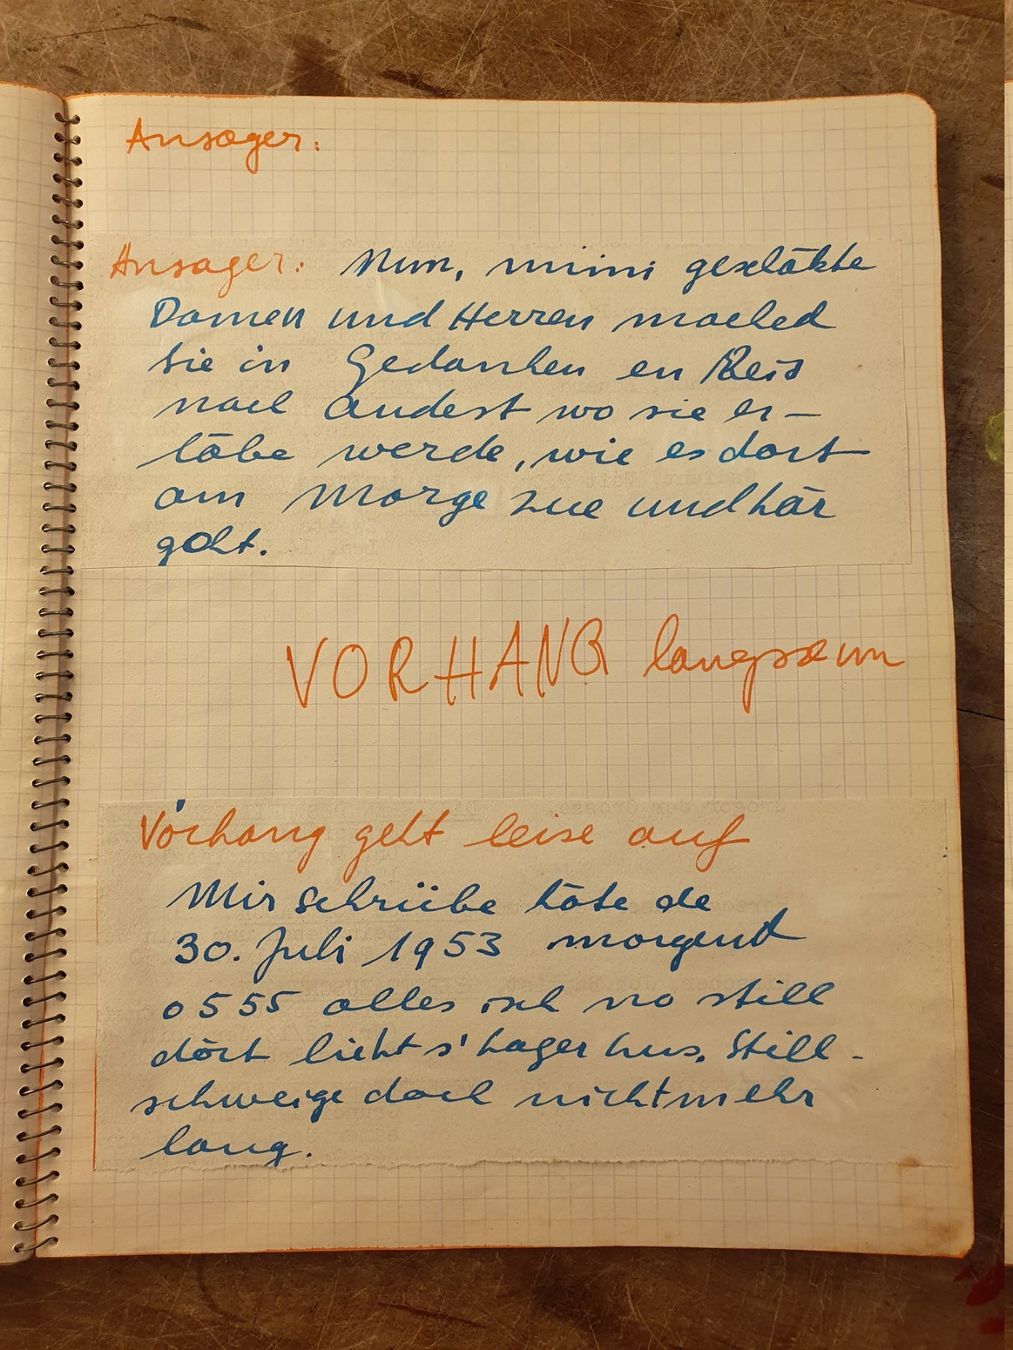 Ansager:
Ansager: Nun, mini geslökte
Damen und Herren mached
sie in Gedanken en Reis
nach Andest wo sie er-
läbe werde, wie es dort
am Morge zue und här
goht.
VORHANG langsam
Vorhang geht leise auf
Mir schriibe höte de
30. Juli 1953 morgend
0555 alles isch no still
dört licht s'Lagerhus. Still-
schweige doch nichtmehr
lang.